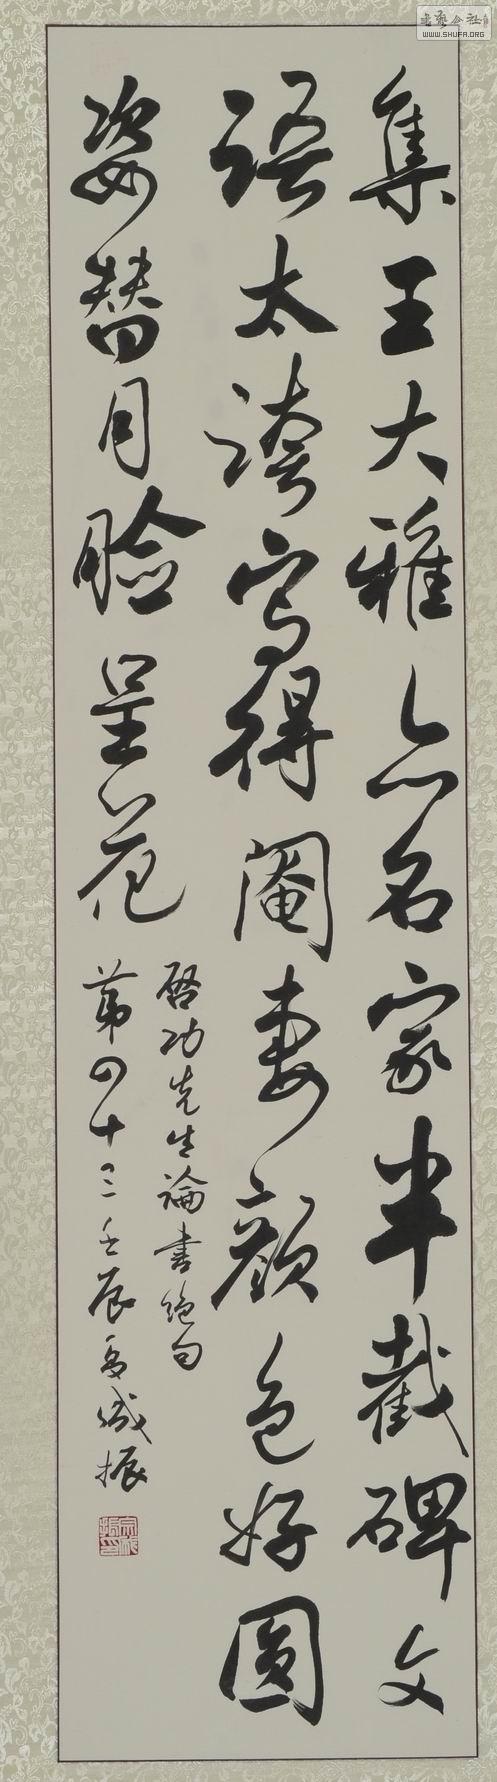 集王大雅亦名家半截碑文
語太誇寫得閹妻顏色好圓
姿替月臉呈花
啓功先生論書絕句
第四十三壬辰夏振
書藝公社
WWW.SHUFA.ORG